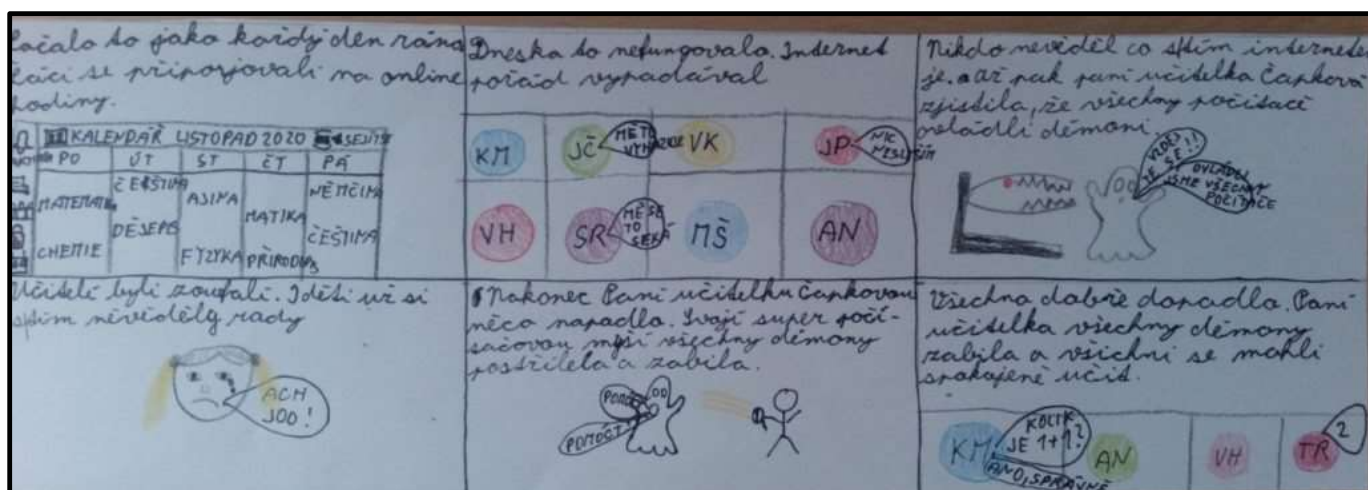 začalo to jako každý den ráno
žáci se připojovali na online
hodiny.
KALENDÁŘ LISTOPAD 2020 SEJÍTY
PO ÚT ST ČT PÁ
MATEMATIKA
ČEŠTINA
AJINA
MATIKA
NĚMČINA
CHEMIE
DĚJEPIS
FYZYKA
PŘÍRODOPIS
ČEŠTINA
Dneska to nefungovalo. Internet
pořád vypadával
KM
JČ
MĚ TO
VK
JP
NIC
NESLYŠÍM
VH
SR
MĚ SE
TO
SEKÁ
MŠ
AN
Nikdo nevěděl co stím internetem
je. až pak paní učitelka Čapková
zjistila, že všechny počítače
ovládli démoni.
VZDEJ
TE
SE!!
OVLÁDLI
JSME VŠECHNY
POČÍTAČE
Učitelé byli zoufalí. I děti už si
stím nevěděly rady
ACH
JOO!
Nakonec Paní učitelku Čapkovou
něco napadlo. Svojí super počí-
tačovou myší všechny démony
postřílela a zabila.
POMOC
POMOC
Všechno dobře dopadlo. Paní
učitelka všechny démony
zabila a všichni se mohli
spokojeně učit.
KM
KOLIK
JE 1+1?
ANO, SPRÁVNĚ
AN
VH
TR
2